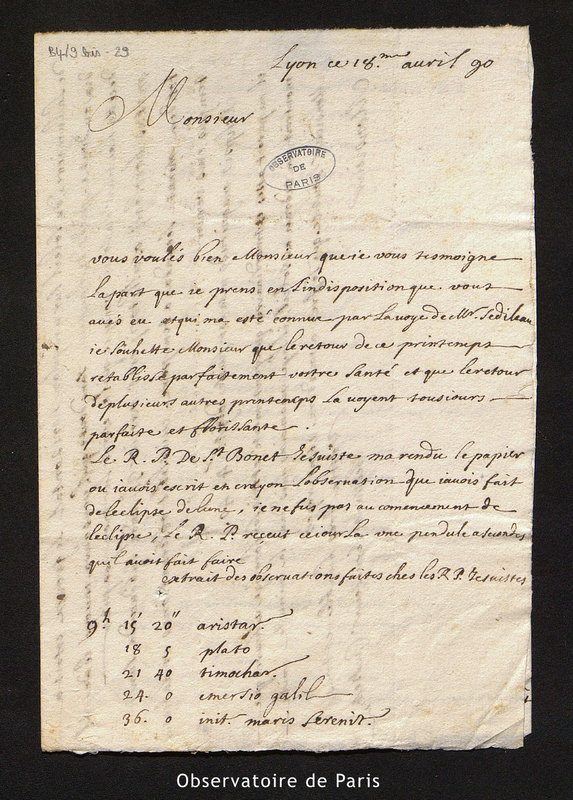 B4/9 bis - 29
Lyon ce 18.me auril 90
Monsieur
OBSERVATOIRE
DE
PARIS
vous voulés bien Monsieur que ie vous tesmoigne
la part que ie prens en l'indisposition que vous
aués eu et qui ma esté connue par la voye de Mr. Sedileau
ie souhette Monsieur que le retour de ce printemps
retablisse parfaitement vostre santé et que le retour
de plusieurs autres printemps la voyent tousiours
parfaite et florissante.
Le R. P. De St Bonet Jesuiste ma rendu le papier
ou iauois escrit en crayon l'observation que iauois fait
de leclipse de lune, ie ne fus pas au comencement de
leclipse, Le R. P. receut ce iour la vne pendule a secondes
qu'il auoit fait faire
extrait des observations faites ches les R P. Jesuistes
9h 15' 20" aristar.
18 5 plato
21 40 timochar.
24. 0 emersio galil
36. 0 init. maris serenit.
Observatoire de Paris